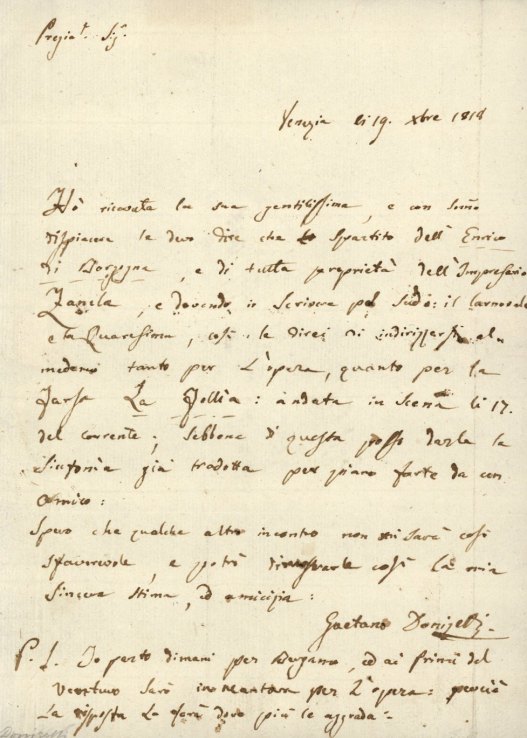 Pregiat. Sigr.
Venezia li 19. Xbre 1818
Hò ricevuta la sua gentilissima, e con sommo
dispiacere le devo dire che lo Spartito dell' Enrico
di Borgogna, e di tutta proprietà dell' Impresario
Zancla, e dovendo io Scrivere pel Sudo: il Carnovale
e la Quaresima, così le direi di indirizzersi al
medemo tanto per L'opera, quanto per la
Farsa La Follia: andata in Scena li 17.
del corrente; Sebbene di questa posso darle la
Sinfonia già tradotta per piano forte da un
Amico:
Spero che qualche altro incontro non mi sarà così
sfavorevole, e potrò dimostrarle così la mia
Sincera stima, ed amicizia:
Gaetano Donizetti.
P. S. Io parto dimani per Bergamo, ed ai primi del
venturo Sarò in Mantova per L'opera: perciò
la risposta La farà dove più le aggrada:
Donizetti